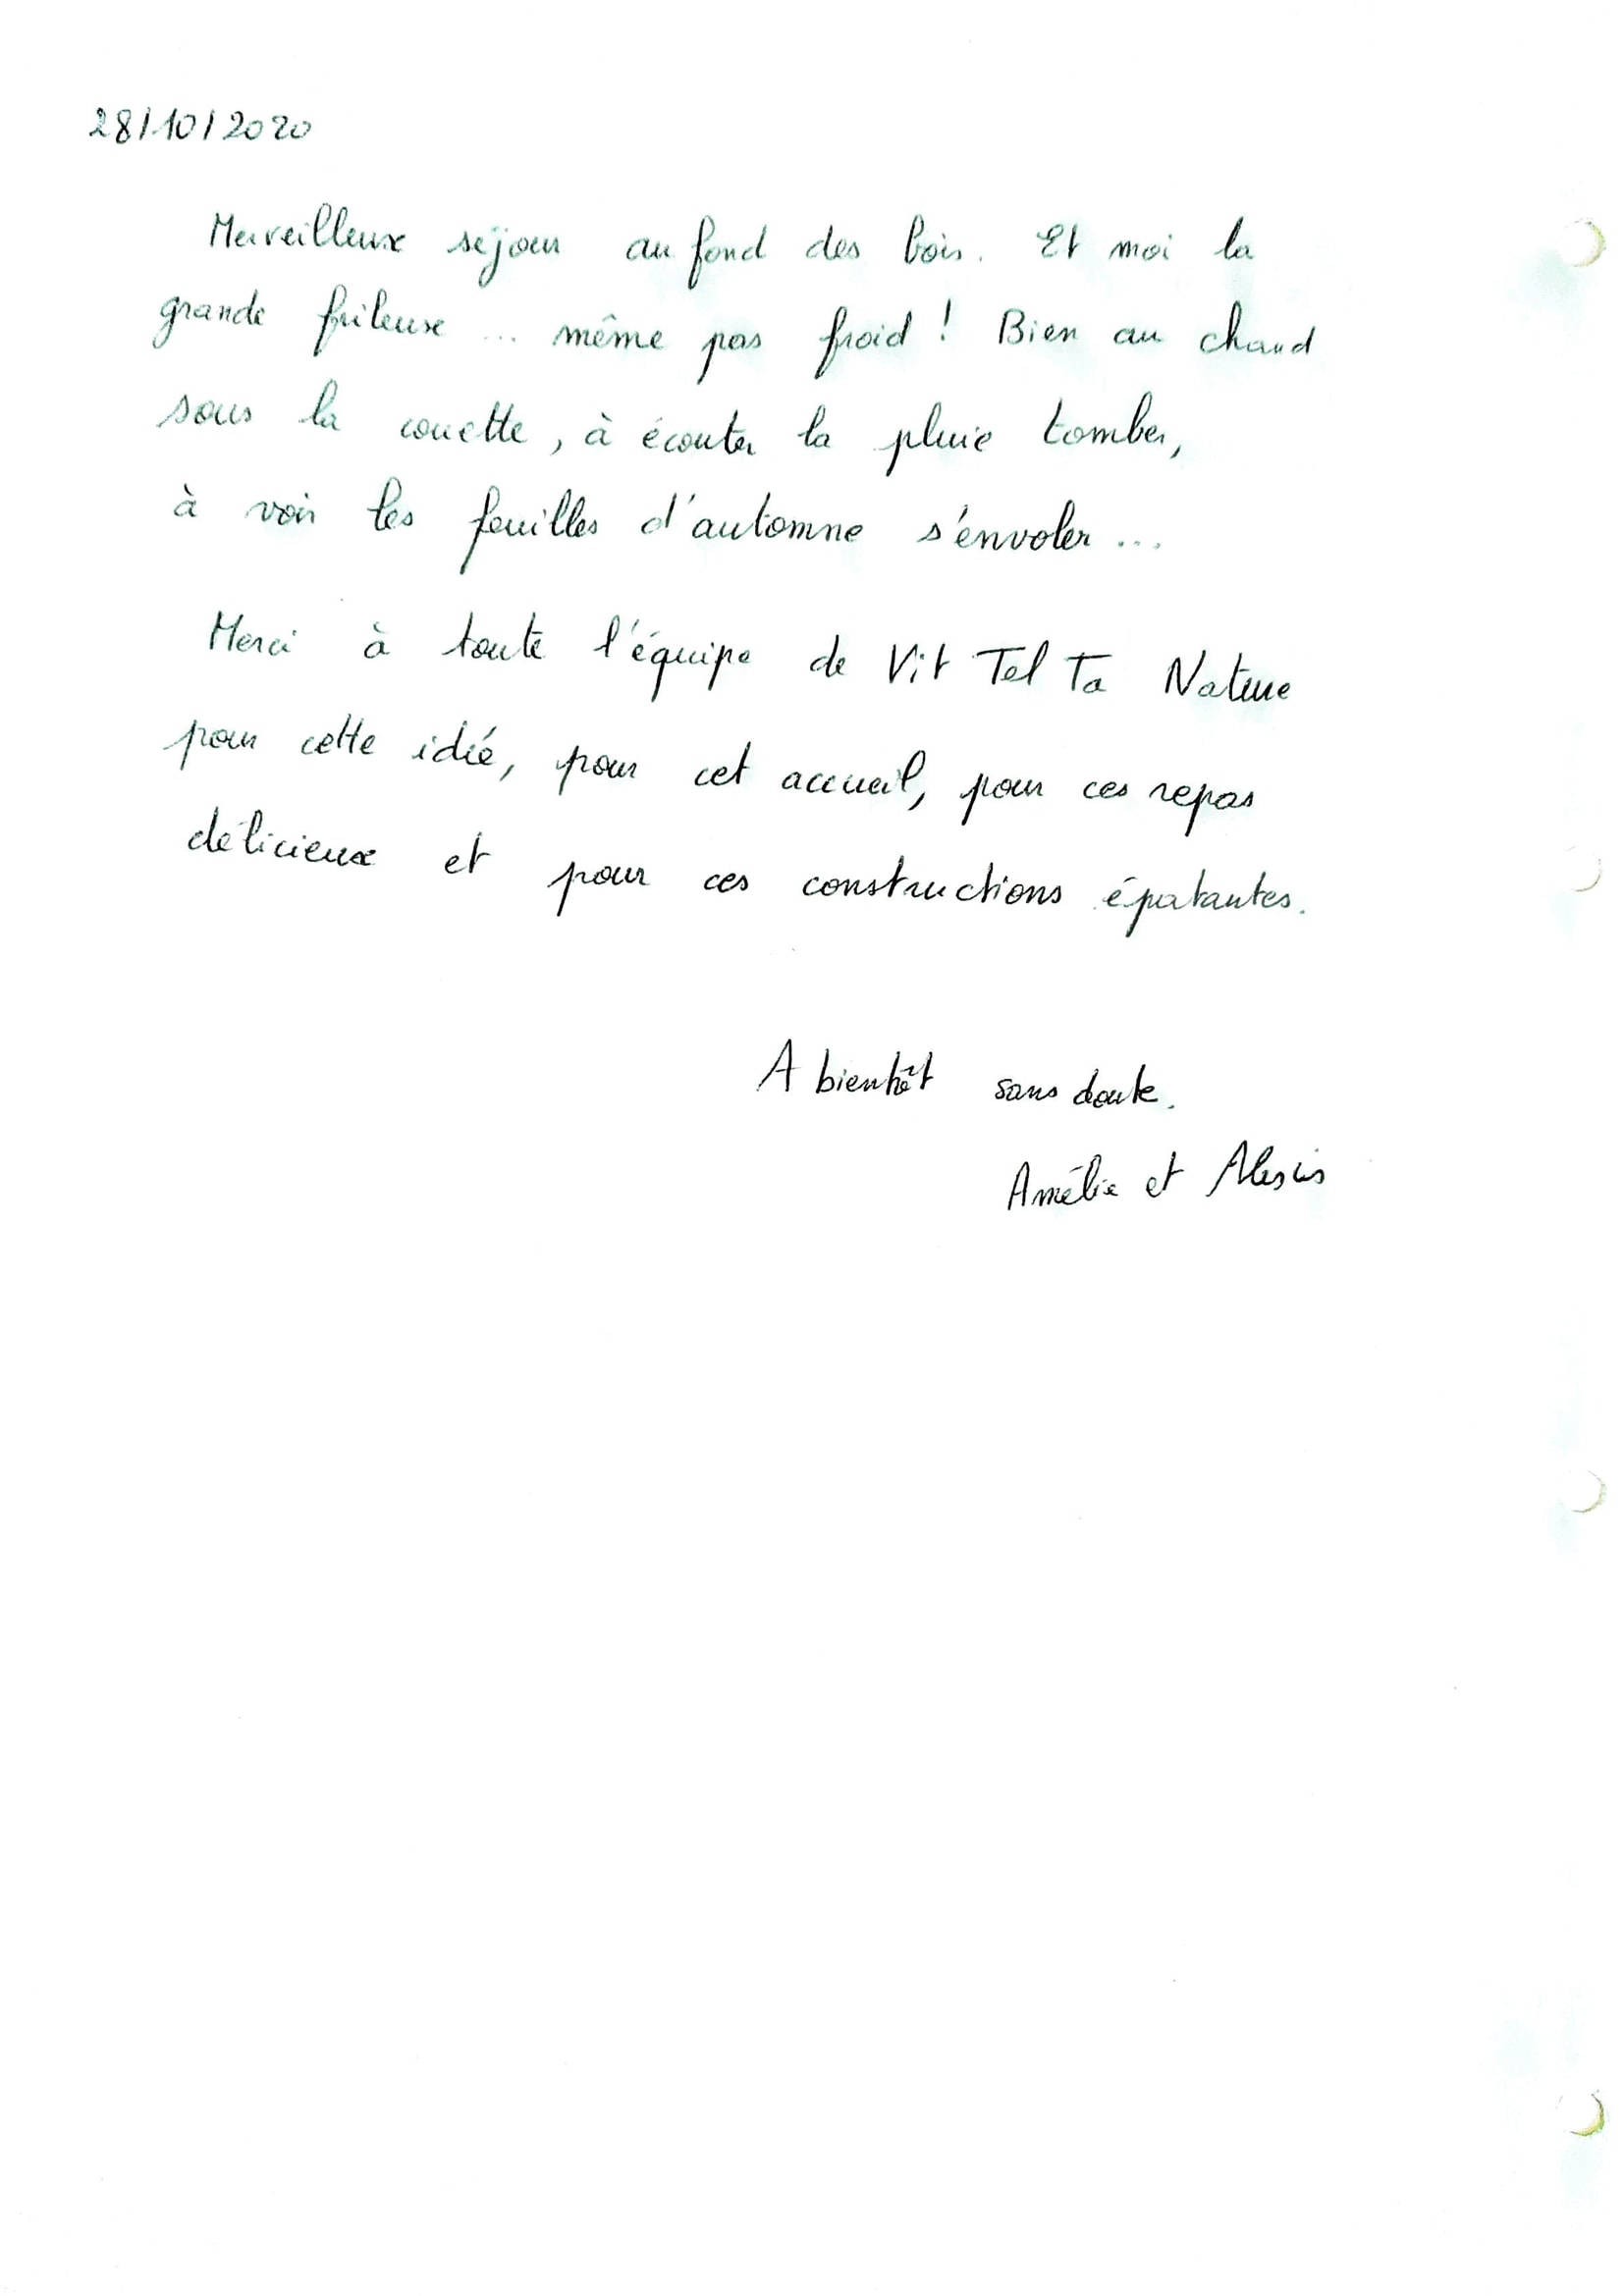 28/10/2020
Merveilleux séjour au fond des bois. Et moi la
grande frileuse ... même pas froid ! Bien au chaud
sous la couette, à écouter la pluie tomber,
à voir les feuilles d'automne s'envoler ...
Merci à toute l'équipe de Vit Tel Ta Nature
pour cette idée, pour cet accueil, pour ces repas
délicieux et pour ces constructions épatantes.
A bientôt sans doute.
Amélie et Alexis